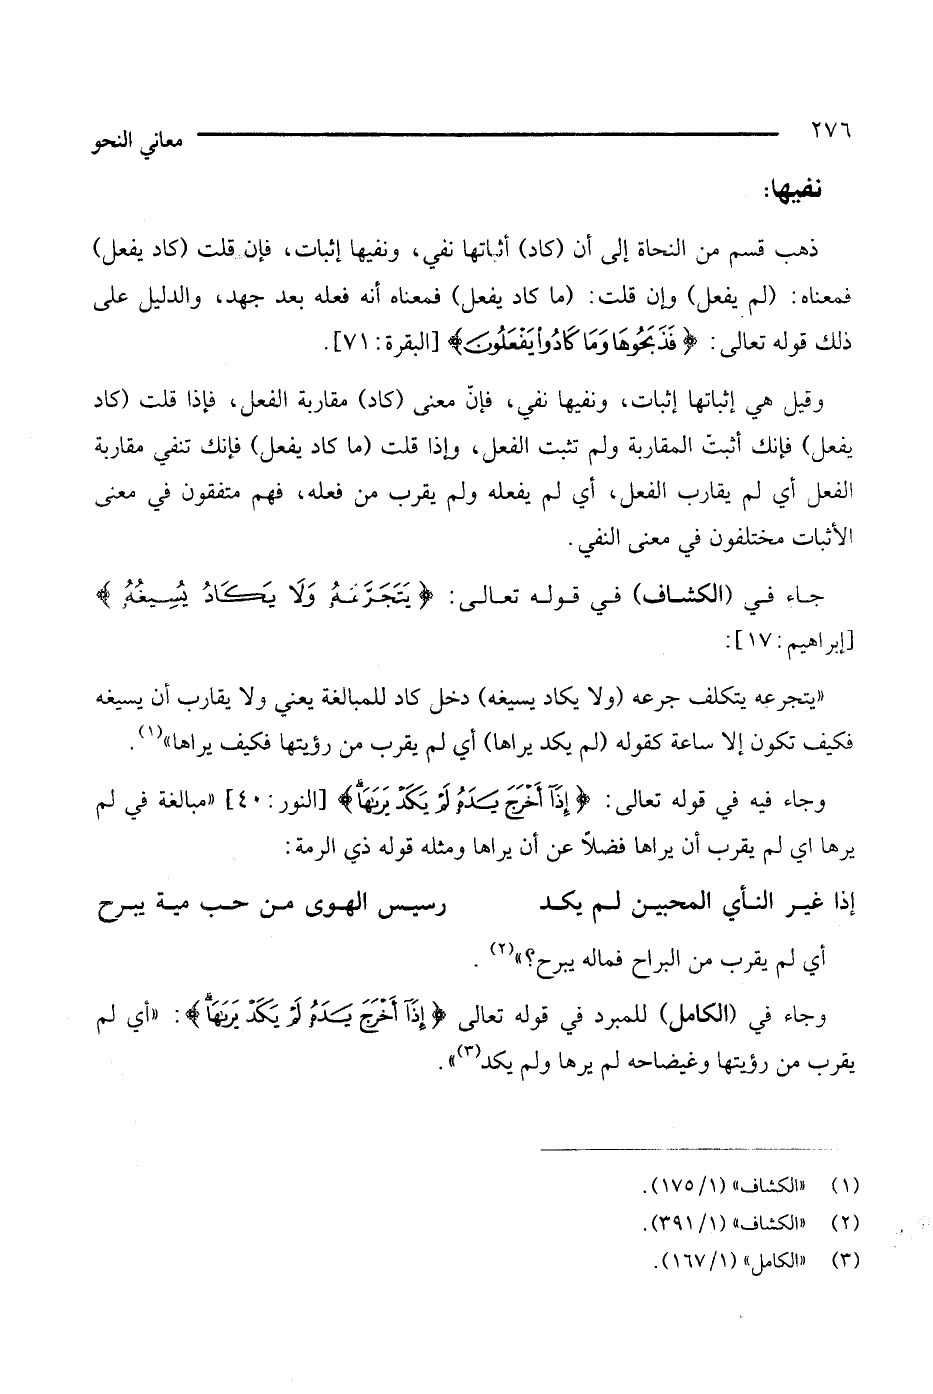 ٢٧٦ معاني النحو
نفيها:
ذهب قسم من النحاة إلى أن (كاد) أثباتها نفي، ونفيها إثبات، فإن قلت (كاد يفعل)
فمعناه: (لم يفعل) وإن قلت: (ما كاد يفعل) فمعناه أنه فعله بعد جهد، والدليل على
ذلك قوله تعالى: ﴿فَذَبَحُوهَا وَمَا كَادُواْ يَفْعَلُونَ﴾ [البقرة: ٧١].
وقيل هي إثباتها إثبات، ونفيها نفي، فإنّ معنى (كاد) مقاربة الفعل، فإذا قلت (كاد
يفعل) فإنك أثبتّ المقاربة ولم تثبت الفعل، وإذا قلت (ما كاد يفعل) فإنك تنفي مقاربة
الفعل أي لم يقارب الفعل، أي لم يفعله ولم يقرب من فعله، فهم متفقون في معنى
الأثبات مختلفون في معنى النفي.
جاء في (الكشاف) في قوله تعالى: ﴿يَتَجَرَّعُهُۥ وَلَا يَكَادُ يُسِيغُهُۥ﴾
[إبراهيم: ١٧]:
«يتجرعه يتكلف جرعه (ولا يكاد يسيغه) دخل كاد للمبالغة يعني ولا يقارب أن يسيغه
فكيف تكون إلا ساعة كقوله (لم يكد يراها) أي لم يقرب من رؤيتها فكيف يراها»(١).
وجاء فيه في قوله تعالى: ﴿إِذَآ أَخْرَجَ يَدَهُۥ لَمْ يَكَدْ يَرَىٰهَاۗ﴾ [النور: ٤٠] «مبالغة في لم
يرها اي لم يقرب أن يراها فضلاً عن أن يراها ومثله قوله ذي الرمة:
إذا غير النأي المحبين لم يكد رسيس الهوى من حب مية يبرح
أي لم يقرب من البراح فماله يبرح؟»(٢).
وجاء في (الكامل) للمبرد في قوله تعالى ﴿إِذَآ أَخْرَجَ يَدَهُۥ لَمْ يَكَدْ يَرَىٰهَاۗ﴾: «أي لم
يقرب من رؤيتها وغيضاحه لم يرها ولم يكد(٣)».
(١) «الكشاف» (١/ ١٧٥).
(٢) «الكشاف» (١/ ٣٩١).
(٣) «الكامل» (١/ ١٦٧).